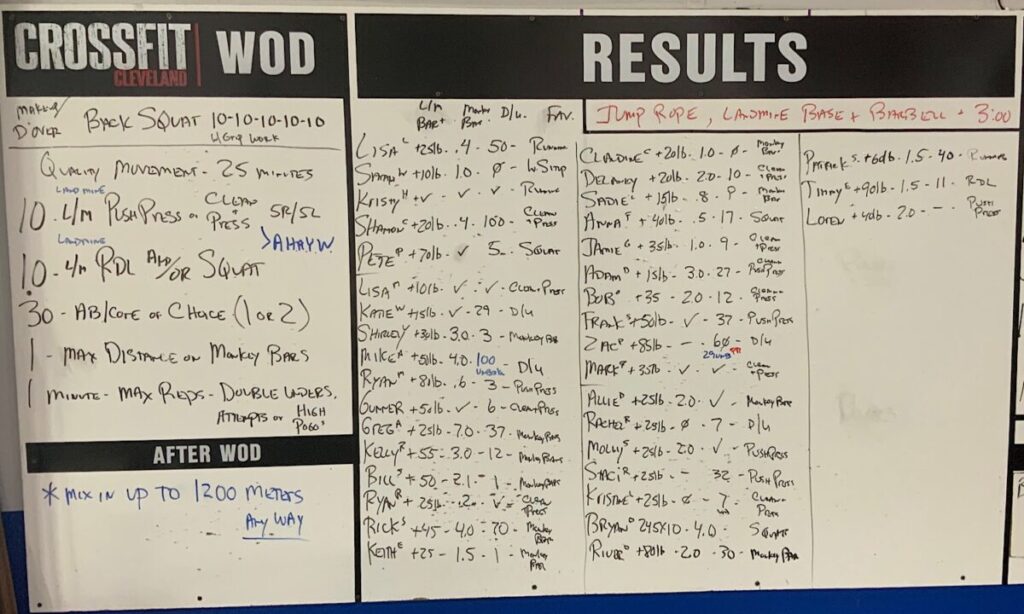 CROSSFIT CLEVELAND WOD
MAKEUP/
D'OVER BACK SQUAT 10-10-10-10-10
QUALITY MOVEMENT - 25 MINUTES
LANDMINE
10 - L/M PUSH PRESS or CLEAN + PRESS 5R/5L
LANDMINE
> ANYWAY
10 - L/M RDL AND/OR SQUAT
30 - AB/CORE OF CHOICE (1 OR 2)
1 - MAX DISTANCE ON MONKEY BARS
1 MINUTE - MAX REPS - DOUBLE UNDERS,
ATTEMPTS OR HIGH POGO'S
AFTER WOD
* MIX IN UP TO 1200 METERS
ANY WAY
RESULTS
JUMP ROPE, LANDMINE BASE + BARBELL - 3:00
L/M BAR+ MONKEY BAR D/U. FAV.
LISA L +25lb - .4 - 50 - RUNNING
+10lb - 1.0 - Ø -
KRISTY H +✓ - ✓ - ✓
SHANNON +20lb - .4 - 100 - CLEAN + PRESS
PETE P +70lb - ✓ - 5 - SQUAT
LISA +10lb - ✓ - ✓ - CLEAN PRESS
KATIE W +15lb - ✓ - 29 - D/U
SHIRLEY +30lb - 3.0 - 3 - MONKEY BAR
MIKE A +50lb - 4.0 - 100 - D/U
RYAN +80lb - .6 - 3 - PUSH PRESS
GUNNER +50lb - ✓ - 6 - CLEAN PRESS
GREG A +25lb - 7.0 - 37 - MONKEY BARS
KELLY R +55 - 3.0 - 12 - MONKEY BARS
BILL S +50 - 2.1 - 1 - MONKEY BARS
RYAN R +25lb - .2 - ✓ - CLEAN + PRESS
RICK S +45 - 4.0 - 70 - MONKEY BAR
KEITH E +25 - 1.5 - 1 - MONKEY BAR
CLAUDINE C +20lb - 1.0 - Ø - MONKEY BAR
DELANEY +20lb - 2.0 - 10 - CLEAN + PRESS
SADIE L +15lb - .8 - - MONKEY BAR
ANNA F +40lb - .5 - 17 - SQUAT
JAMIE G +35lb - 1.0 - 9 - CLEAN + PRESS
ADAM D +15lb - 3.0 - 27 - PUSH PRESS
BOB +35 - 2.0 - 12 - CLEAN + PRESS
FRANK S +50lb - ✓ - 37 - PUSH PRESS
ZAC P +85lb - — - 60 - D/U
29 UNB PR
MARK +35lb - ✓ - ✓ - CLEAN + PRESS
ALLIE D +25lb - 2.0 - ✓ - MONKEY BARS
RACHEL R +25lb - Ø - 7 - D/U
MOLLY S +25lb - 2.0 - ✓ - PUSH PRESS
STACI R +25lb - — - 32 - PUSH PRESS
KRISTINE L +25lb - Ø - 7 - CLEAN + PRESS
BRYAN D 245X10 - 4.0 - SQUATS
RIVER D +80lb - 2.0 - 30 - MONKEY BAR
PATRICK S +60lb - 1.5 - 40 - RUNNING
TIMMY E +90lb - 1.5 - 11 - RDL
LOREN +40lb - 2.0 - — - PUSH PRESS